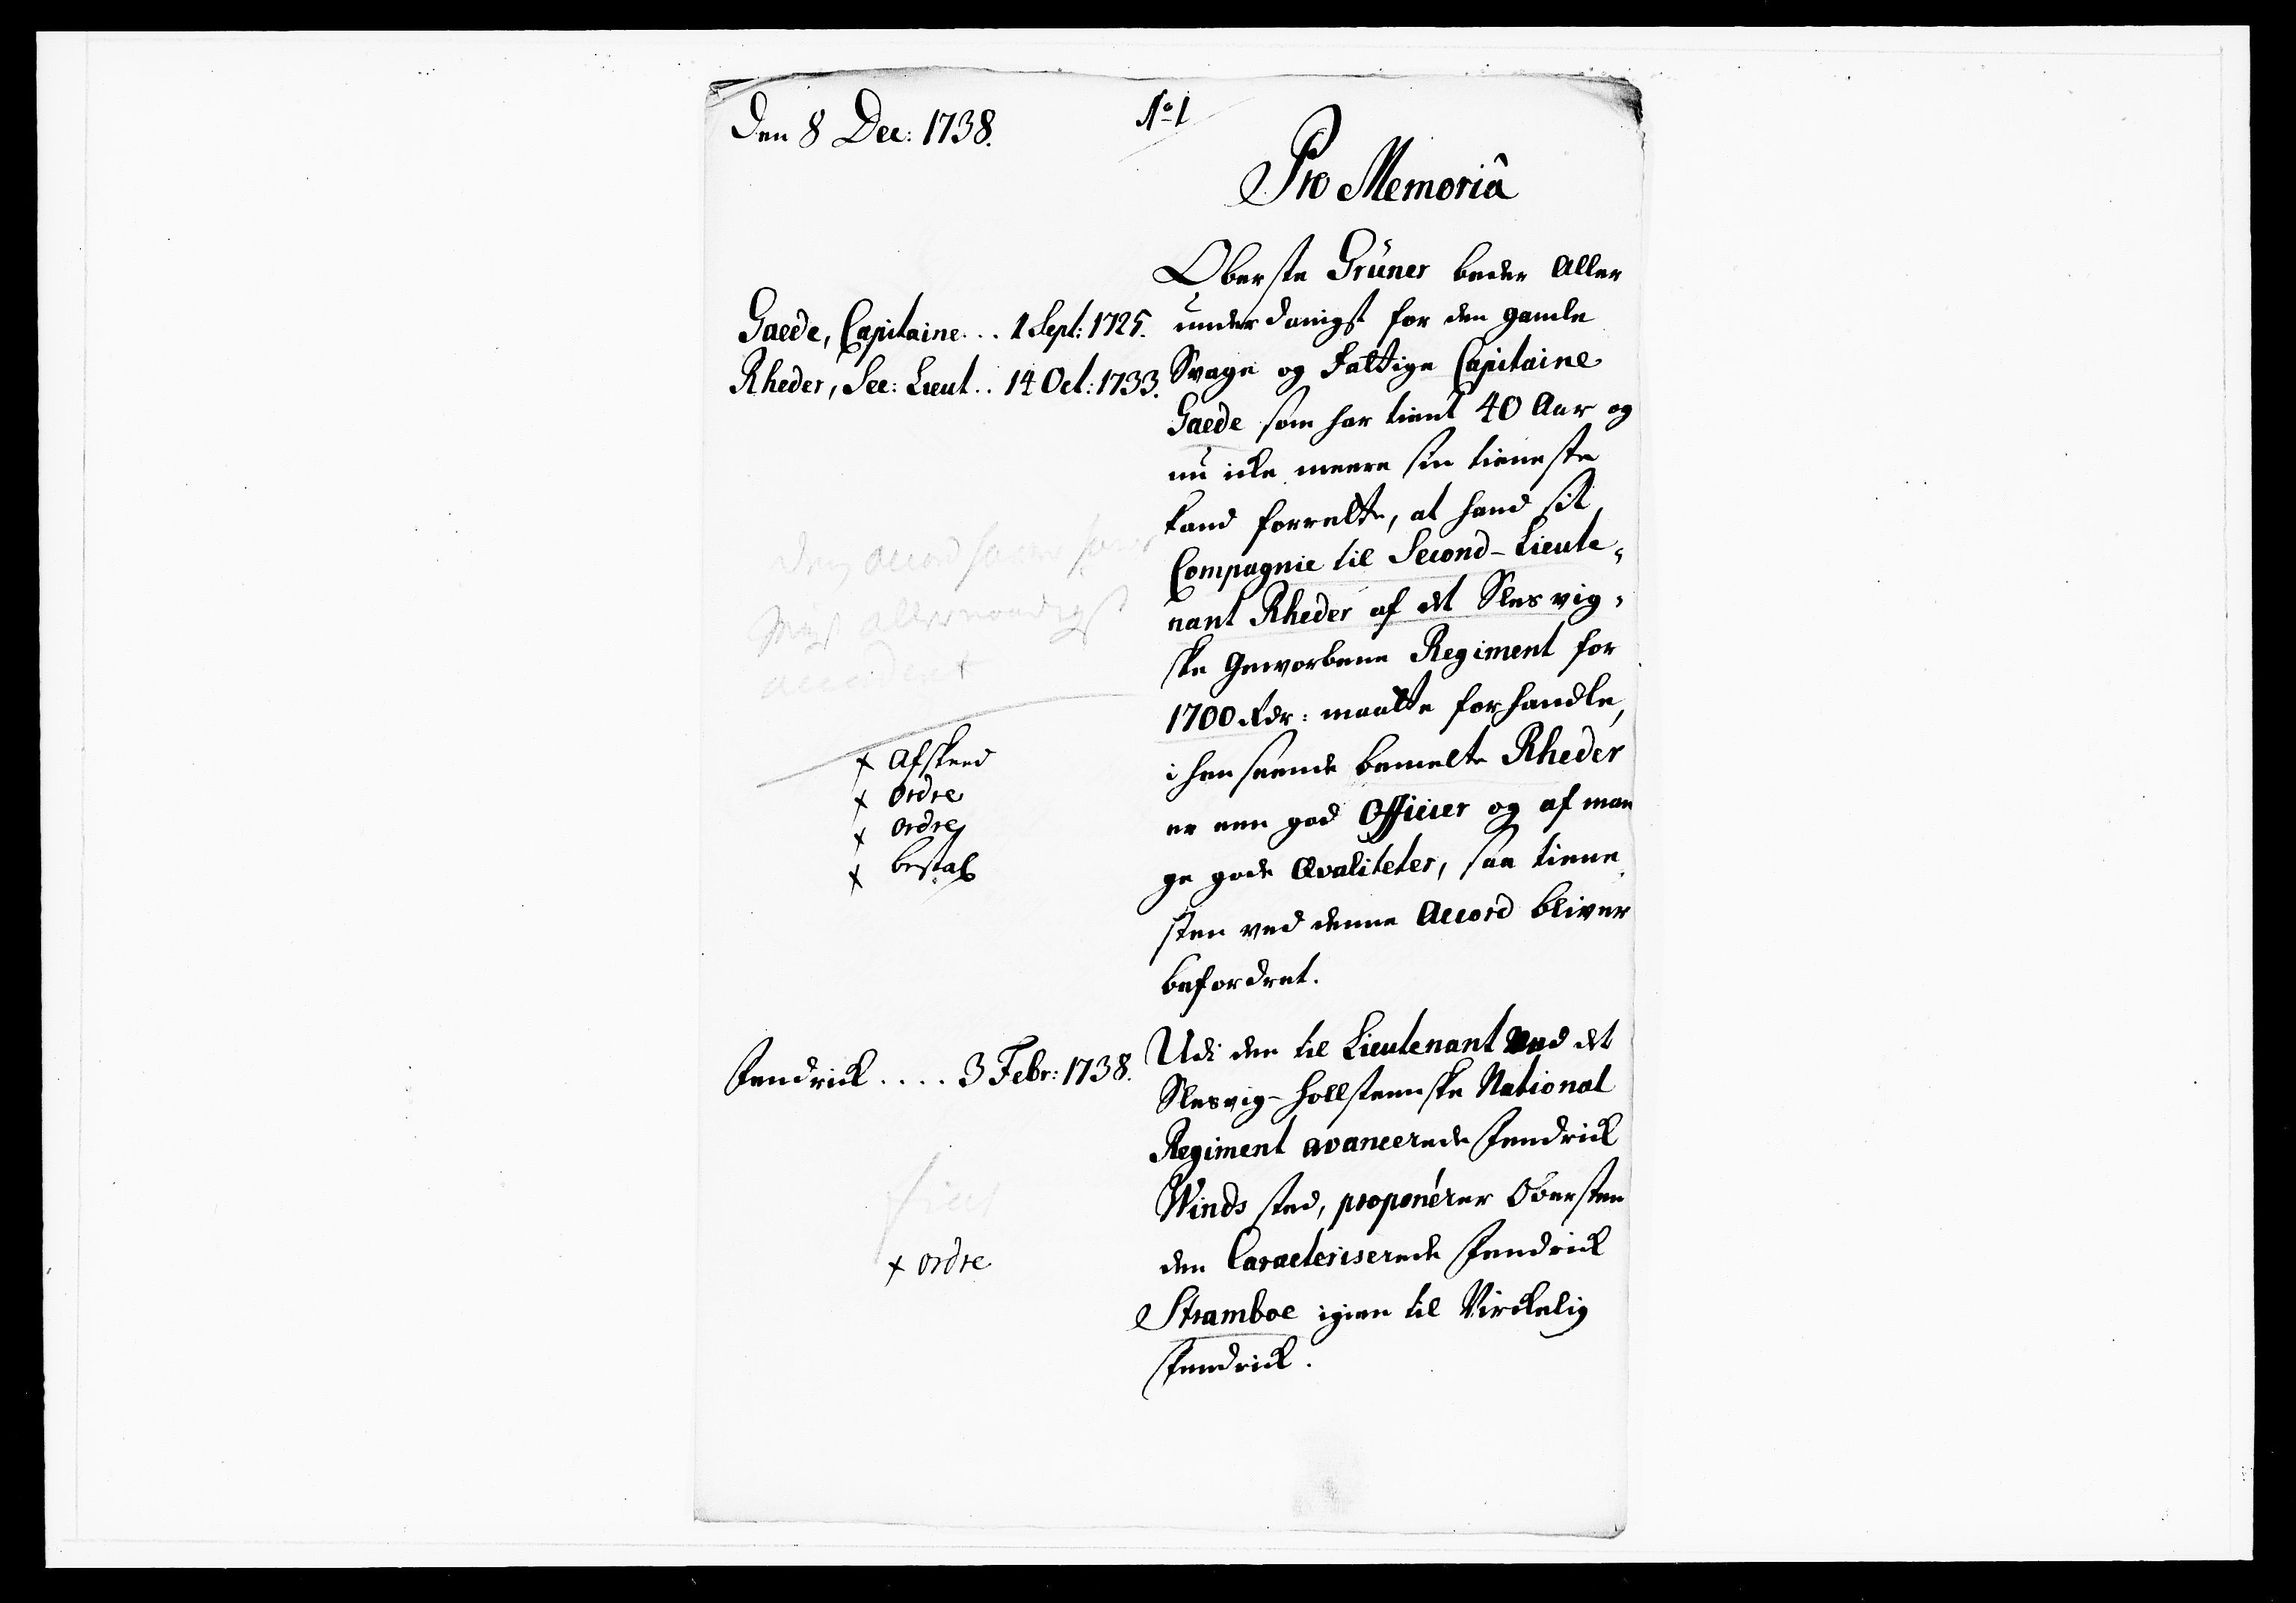 Den 8 Dec: 1738.
No 1
Pro Memoriâ
Gaede, Capitaine... 1 Sept: 1725.
Rheder, Sec: Lieut.. 14 Oct: 1733.
Oberste Grüner beder Aller
underdanigst for den gamle
Svage og Fattige Capitaine
Gaede som har tient 40 Aar og
nu icke meere sin tieneste
kand forrette, at hand sit
Compagnie til Second-Lieute-
nant Rheder af det Slesvig-
ske Geworbene Regiment for
1700 Rdr: maatte forhandle,
i henseende bemelte Rheder
er een god Officier og af man
ge gode Qvaliteter, saa tiene
sten ved denne Accord bliver
befordret.
allernaadigst
accordert
x Afskeed
x Ordre
x Ordre
x bestal
Fendrick.... 3 Febr: 1738.
Udi den til Lieutenant ved det
Slesvig-Hollsteenske National
Regiment avancerede Fendrick
Winds sted, proponérer Obersten
den Caracteriserede Fendrick
Stramboe igien til Virckelig
Fendrick.
fiat
x Ordre